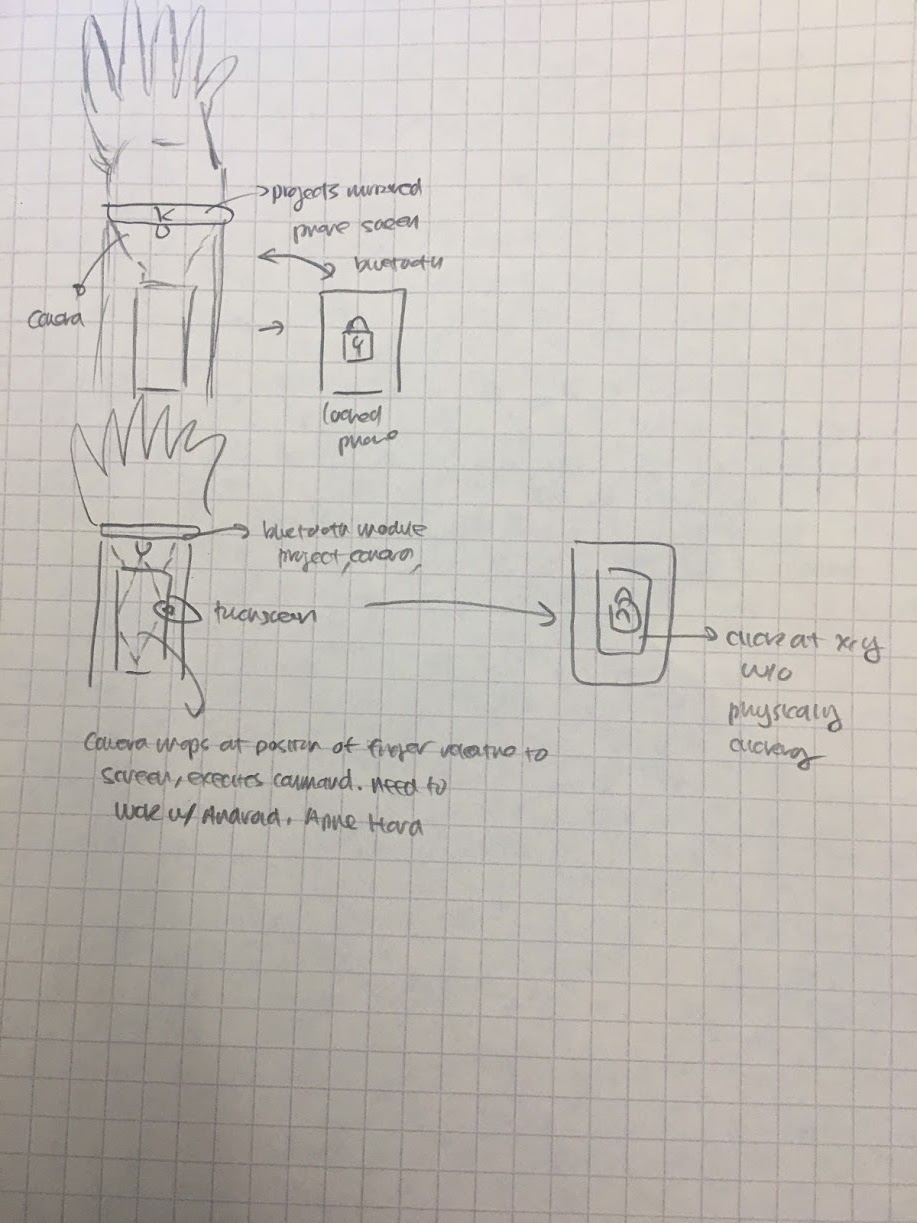 projects mirrored
phone screen
bluetooth
camera
locked
phone
bluetooth module
project, camera,
touchscreen
click at x,y
w/o
physically
clicking
Camera maps at position of finger relative to
screen, executes command. need to
work w/ Android, Apple Hard